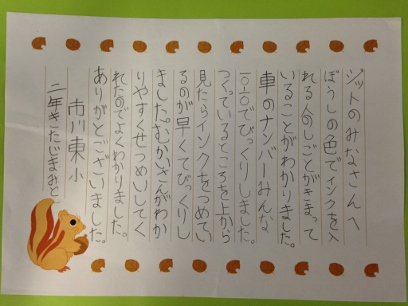 ジットのみなさんへ
ぼうしの色でインクを入
れる人のしごとがきまって
いることがわかりました。
車のナンバーみんな
一〇一〇でびっくりしました。
つくっているところを上から
見たらインクをつめてい
るのが早くてびっくりし
ました。むかいさんがわか
りやすくせつめいしてく
れたのでよくわかりました。
ありがとうございました。
市川東小
二年きただいまみど